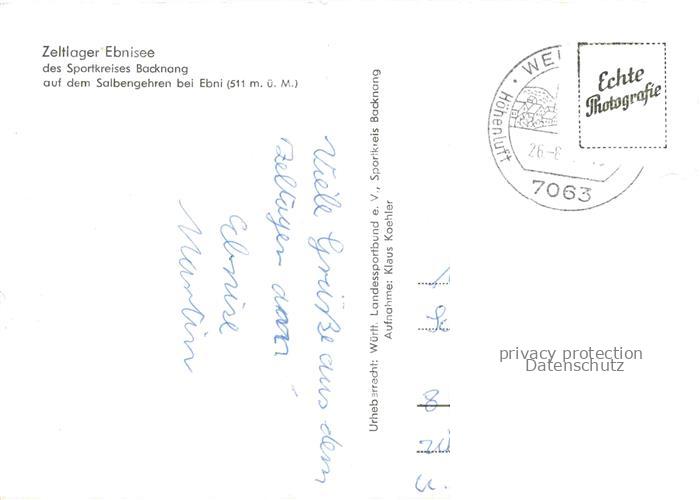 Zeltlager Ebnisee
des Sportkreises Backnang
auf dem Salbengehren bei Ebni (511 m. ü. M.)
Viele Grüße aus dem
Zeltlager am
Ebnisee
Martin
Urheberrecht: Württ. Landessportbund e. V., Sportkreis Backnang
Aufnahme: Klaus Koehler
WEL
Höhenluft
26.-8
7063
Echte
Photografie
8
privacy protection
Datenschutz